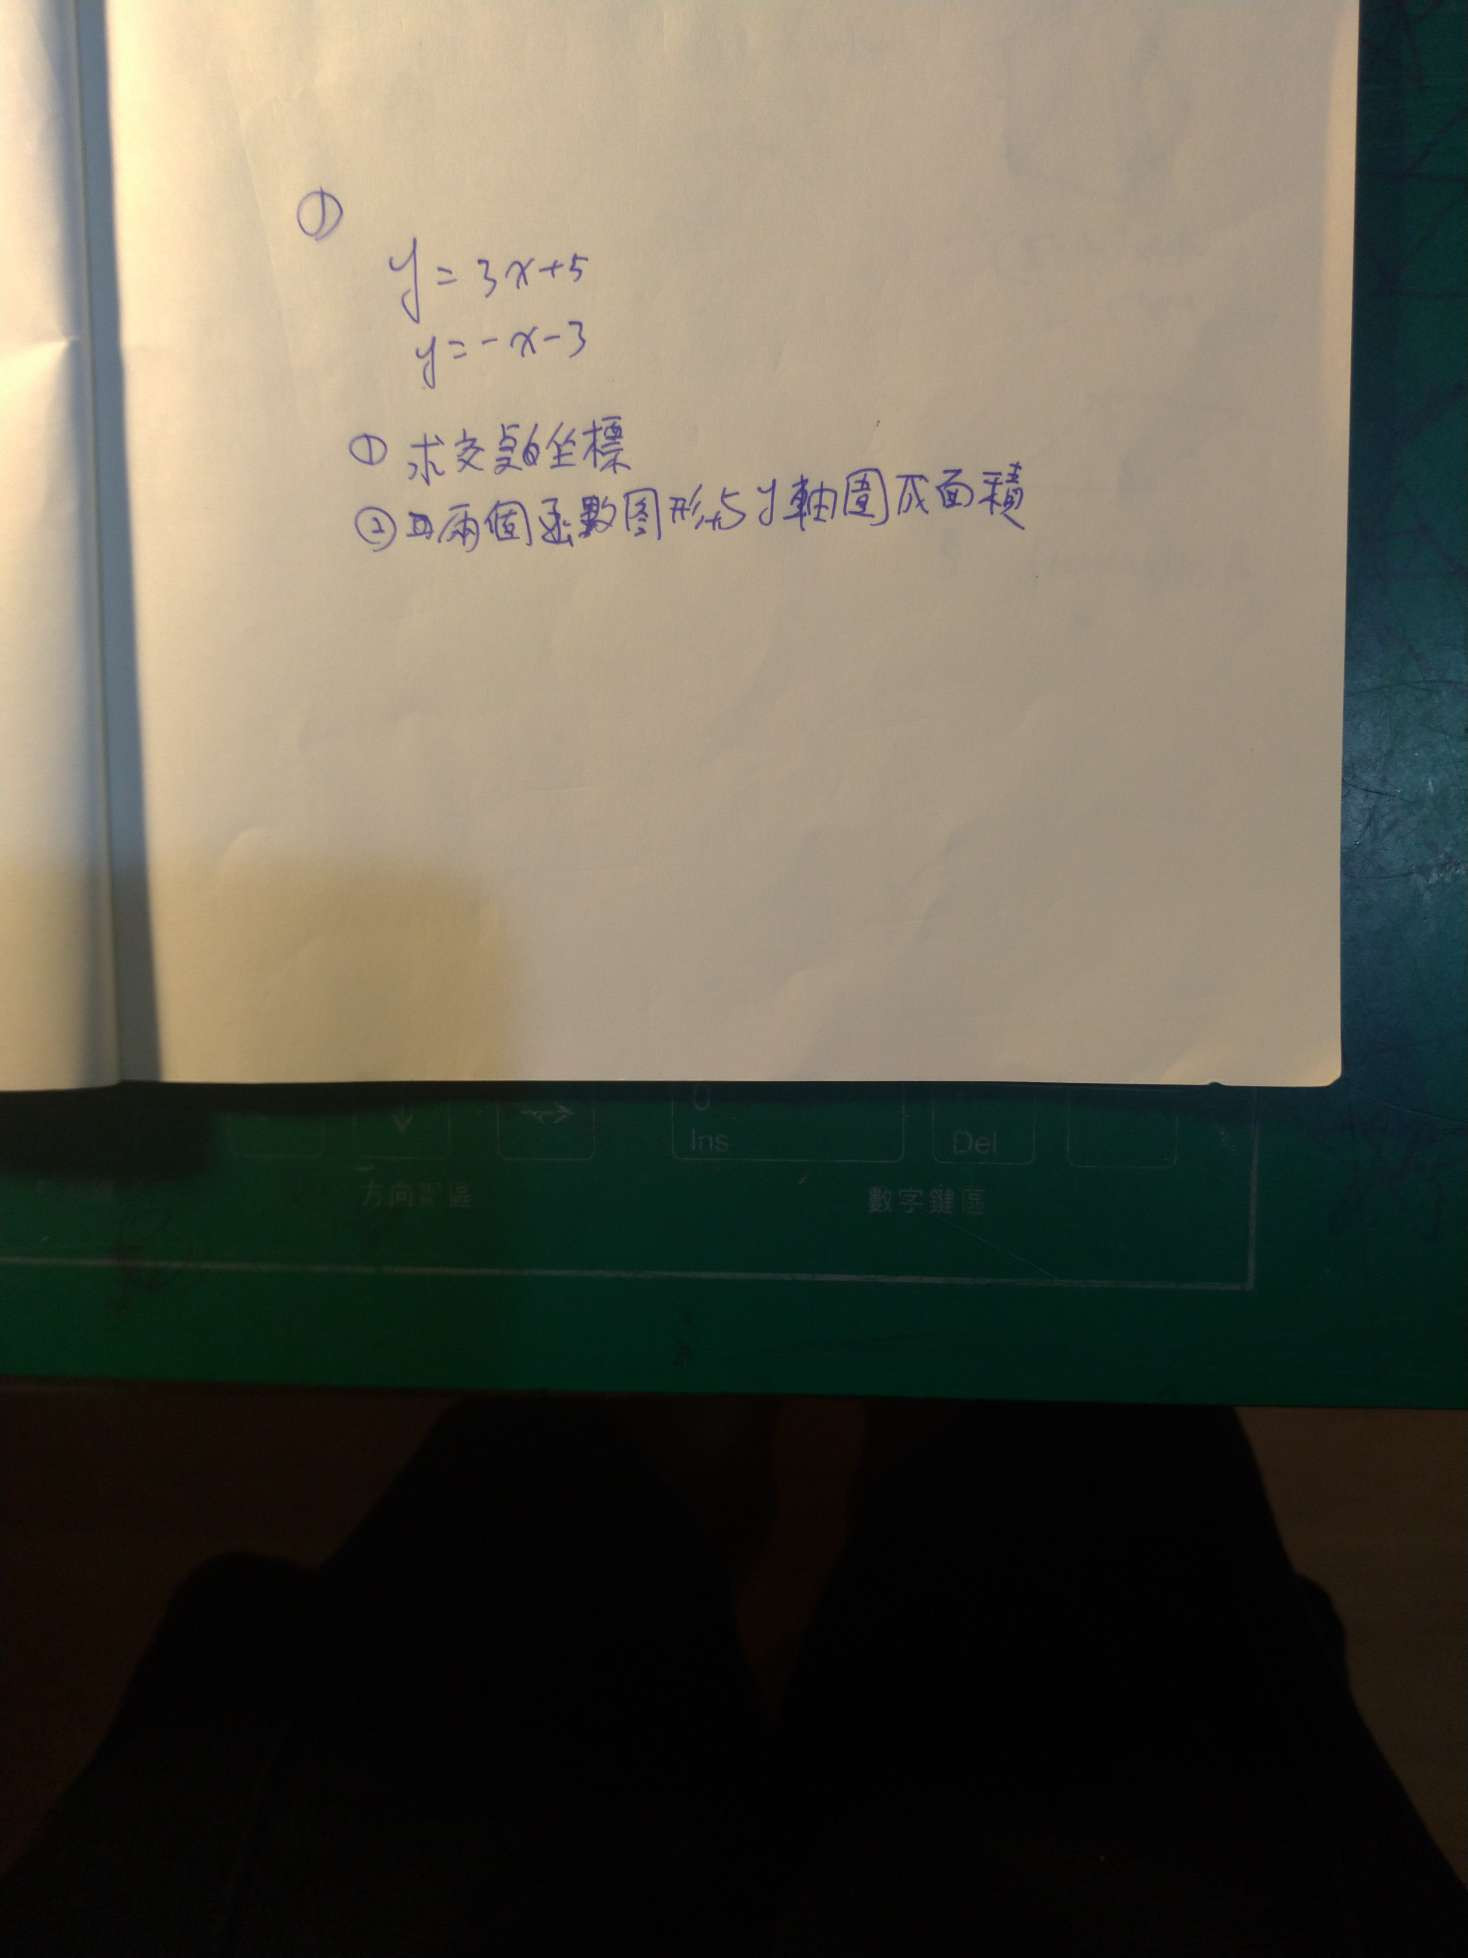 ①
y=3x+5
y=-x-3
① 求交點坐標
② 兩個函數图形与y軸圍成面積
0
Ins
Del
方向鍵區
數字鍵區